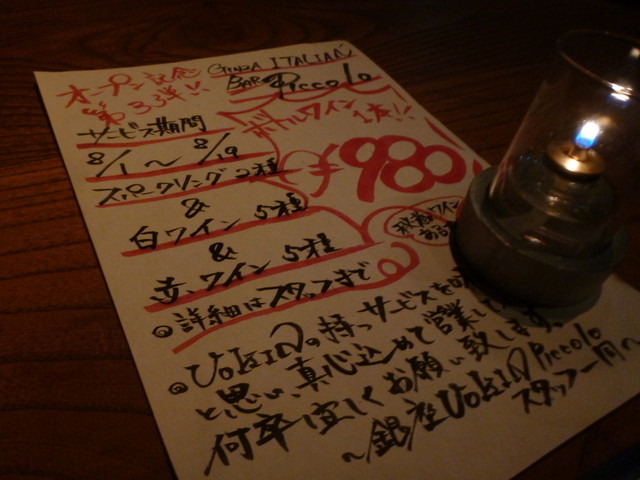 オープン記念 GINZA ITALIAN
第33弾!! BAR Piccolo
サービス期間 ボトルワイン 1本!!
8/1 〜 8/19 ¥980
スパークリング 2種
&
白ワイン 5種
&
赤ワイン 5種
◎詳細はスタッフまで
◎UOKINの持つサービスを
と思い、真心込めて営業して
何卒宜しくお願い致します。
〜銀座UOKIN Piccolo
スタッフ一同〜